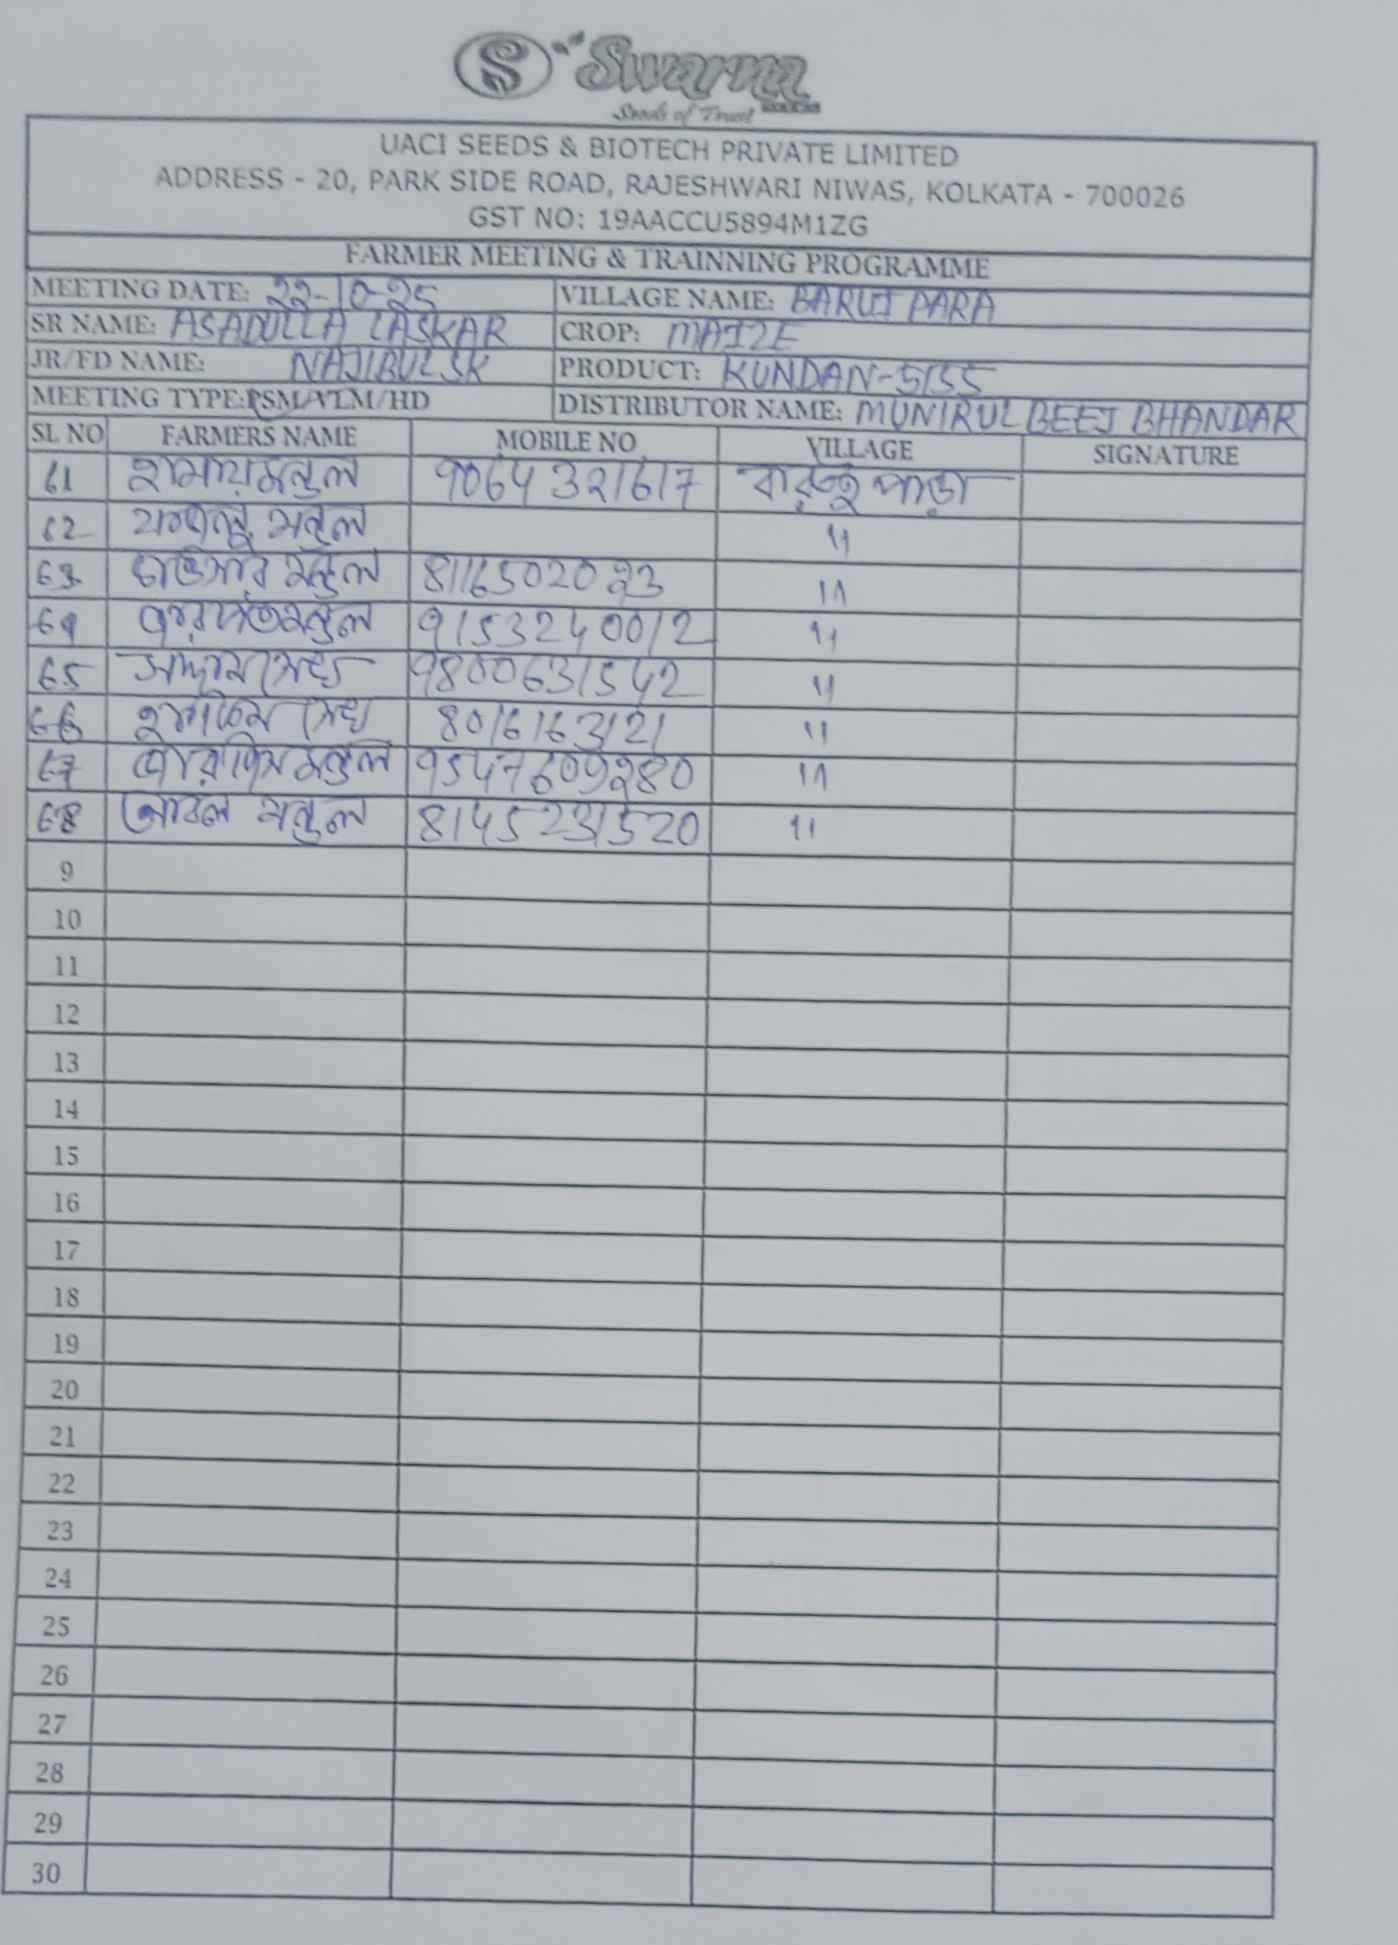 S Swarna
Seeds of Trust
UACI SEEDS & BIOTECH PRIVATE LIMITED
ADDRESS - 20, PARK SIDE ROAD, RAJESHWARI NIWAS, KOLKATA - 700026
GST NO: 19AACCU5894M1ZG
FARMER MEETING & TRAINNING PROGRAMME
MEETING DATE: 22-10-25 VILLAGE NAME: BARUI PARA
SR NAME: ASADULLA LASKAR CROP: MAIZE
JR/FD NAME: NAJIBUL SK PRODUCT: KUNDAN-5155
MEETING TYPE: PSM/VLM/HD DISTRIBUTOR NAME: MUNIRUL BEEJ BHANDAR
SL NO FARMERS NAME MOBILE NO VILLAGE SIGNATURE
61 9064321617 বারুই পাড়া
62 মন্ডল 11
63 মন্ডল 8116502023 11
64 মন্ডল 9153240012 11
65 সাদ্দাম সেখ 9800631542 11
66 সেখ 8016163121 11
67 মন্ডল 9547609280 11
68 মন্ডল 8145231520 11
9
10
11
12
13
14
15
16
17
18
19
20
21
22
23
24
25
26
27
28
29
30